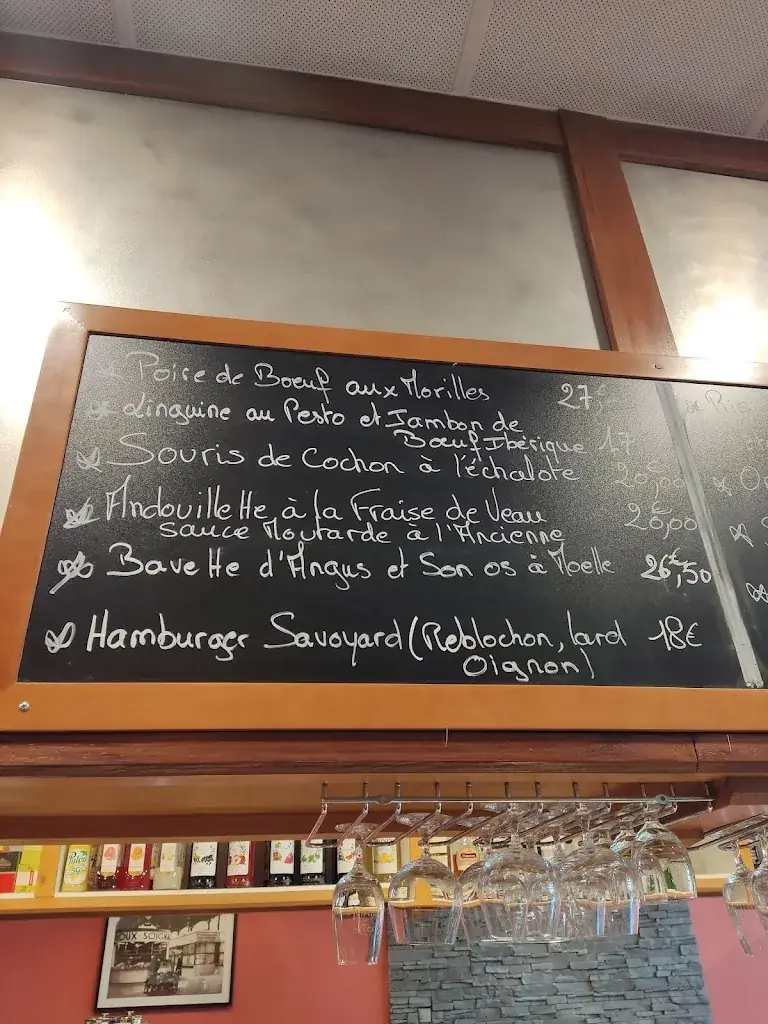 Poire de Boeuf aux Morilles 27€
Linguine au Pesto et Jambon de
Boeuf Ibérique 17
Souris de Cochon à l'échalote 20,00
Andouillette à la Fraise de Veau 20,00
sauce Moutarde à l'Ancienne
Bavette d'Angus et Son os à Moelle 26€,50
Hamburger Savoyard (Reblochon, lard 18€
Oignon)